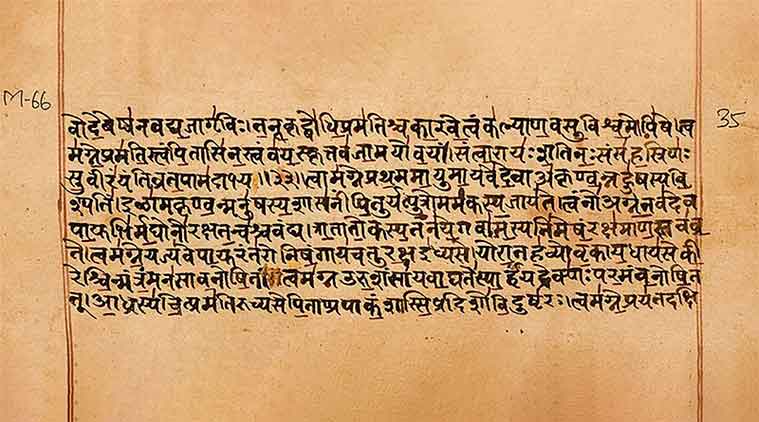 M-66
वोदेवेष्वनवद्यजागृविः। तनूकृद्बोधिप्रमतिश्चकारवेत्वंकल्याणवसुविश्वमोपिषे। त्व
मग्नेप्रमतिस्त्वंपितासिनस्त्वंवयस्कृत्तवजामयोवयं। संत्वारायःशतिनःसंसहस्रिणः
सुवीरंयंतिव्रतपामदाभ्य॥३३॥त्वामग्नेप्रथममायुमायवेदेवाअकृण्वन्नहुषस्यवि
श्पतिं। इळामकृण्वन्मनुषस्यशासनींपितुर्यत्पुत्रोममकस्यजायते। त्वंनोअग्नेतवदेव
पायुभिर्मघोनोरक्षतन्वश्चवंद्य। त्रातातोकस्यतनयेगवामस्यनिमेषंरक्षमाणस्तवव्र
ते। त्वमग्नेयज्यवेपायुरंतरोनिषंगायचतुरक्षइध्यसे। योरातहव्योवृकायधायसेकी
रेश्चिन्मंत्रंमनसावनोषितं। त्वमग्नउरुशंसायवाघतेस्पार्हंयद्रेक्णःपरमंवनोषित
त्। आध्रस्यचित्प्रमतिरुच्यसेपिताप्रपाकंशास्सिप्रदिशोविदुष्टरः। त्वमग्नेप्रयतदक्षि
35